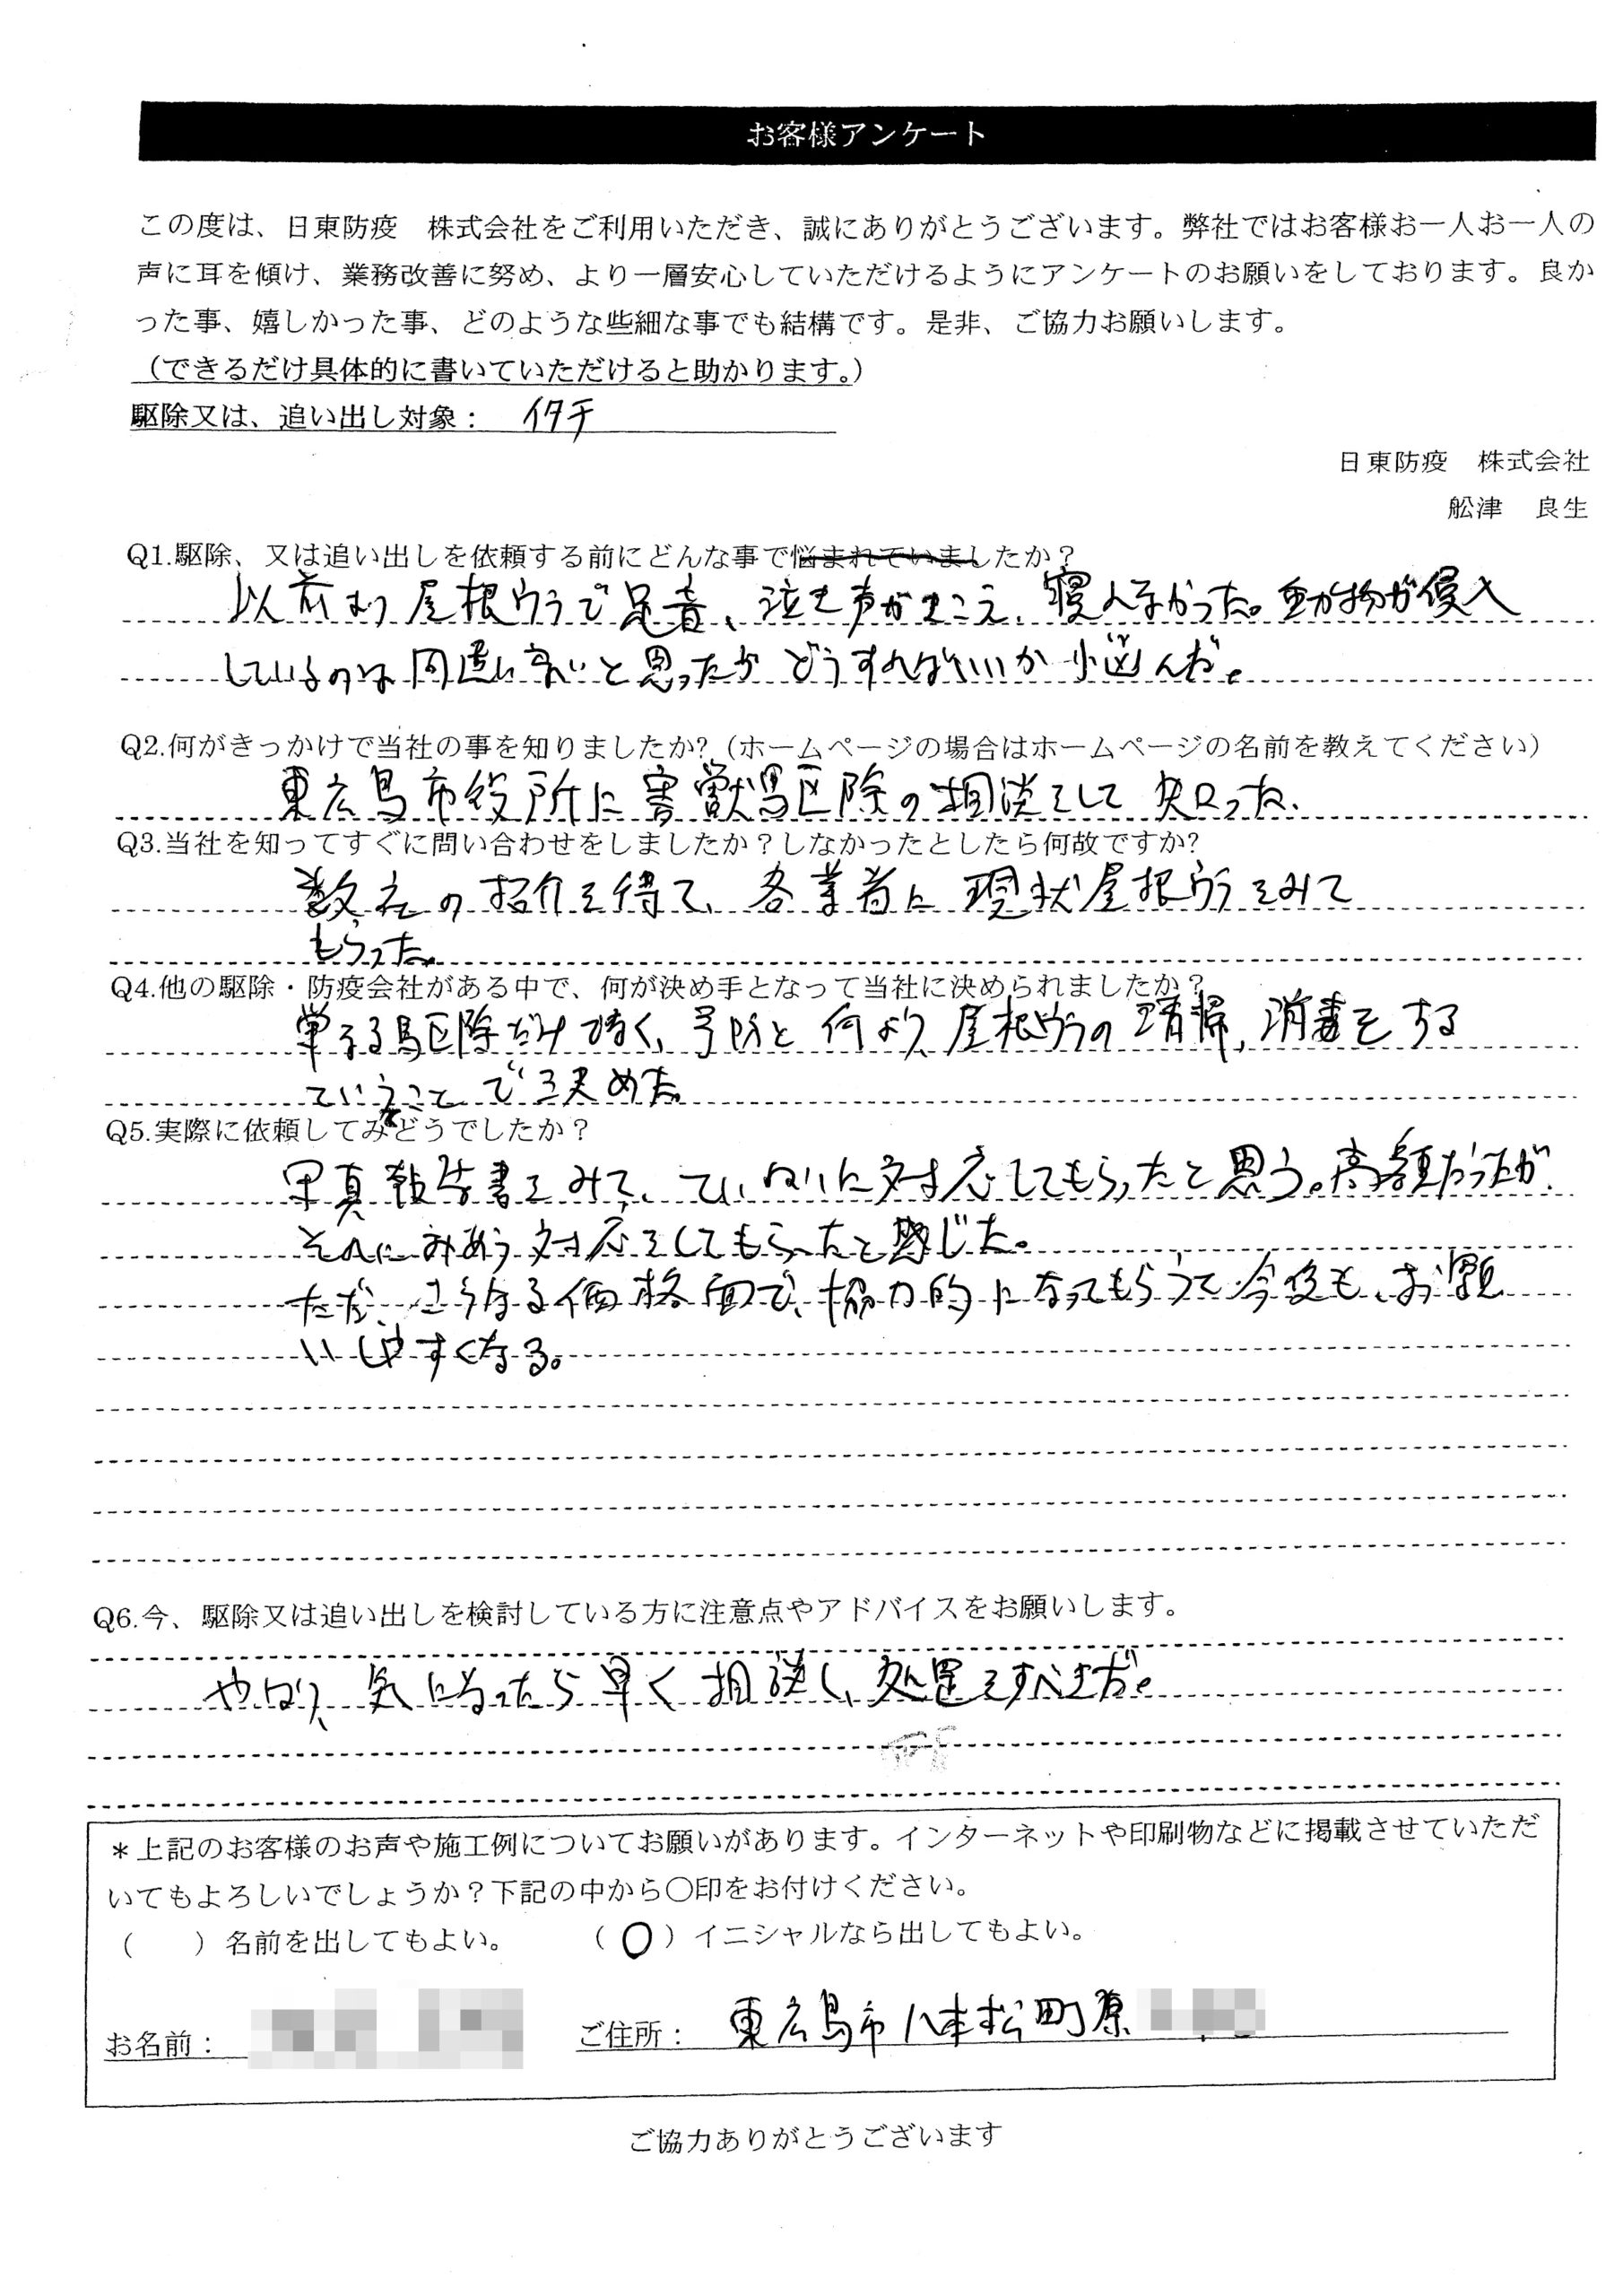 お客様アンケート
この度は、日東防疫　株式会社をご利用いただき、誠にありがとうございます。弊社ではお客様お一人お一人の
声に耳を傾け、業務改善に努め、より一層安心していただけるようにアンケートのお願いをしております。良か
った事、嬉しかった事、どのような些細な事でも結構です。是非、ご協力お願いします。
（できるだけ具体的に書いていただけると助かります。）
駆除又は、追い出し対象： イタチ
日東防疫　株式会社
舩津　良生
Q1.駆除、又は追い出しを依頼する前にどんな事で悩まれていましたか？
以前より屋根ウラで足音、泣き声がきこえ、寝れなかった。動物が侵入
しているのは間違いないと思ったが どうすればいいか 悩んだ。
Q2.何がきっかけで当社の事を知りましたか?（ホームページの場合はホームページの名前を教えてください）
東広島市役所に害獣駆除の相談をして知った。
Q3.当社を知ってすぐに問い合わせをしましたか？しなかったとしたら何故ですか?
数社の紹介を得て、各業者に現状屋根ウラをみて
もらった。
Q4.他の駆除・防疫会社がある中で、何が決め手となって当社に決められましたか？
単なる駆除だけでなく、予防と何より、屋根ウラの清掃、消毒をする
ていうことで決めた。
Q5.実際に依頼してみてどうでしたか？
写真報告書をみて、ていねいに対応してもらったと思う。高額だったが、
それにみあう対応をしてもらったと感じた。
ただ、さらなる価格面で、協力的になってもらうと今後も、お願
いしやすくなる。
Q6.今、駆除又は追い出しを検討している方に注意点やアドバイスをお願いします。
やはり、気になったら早く相談し、処置をすべきだ。
＊上記のお客様のお声や施工例についてお願いがあります。インターネットや印刷物などに掲載させていただ
いてもよろしいでしょうか？下記の中から〇印をお付けください。
（　　）名前を出してもよい。　（〇）イニシャルなら出してもよい。
お名前：　ご住所： 東広島市八本松町原
ご協力ありがとうございます